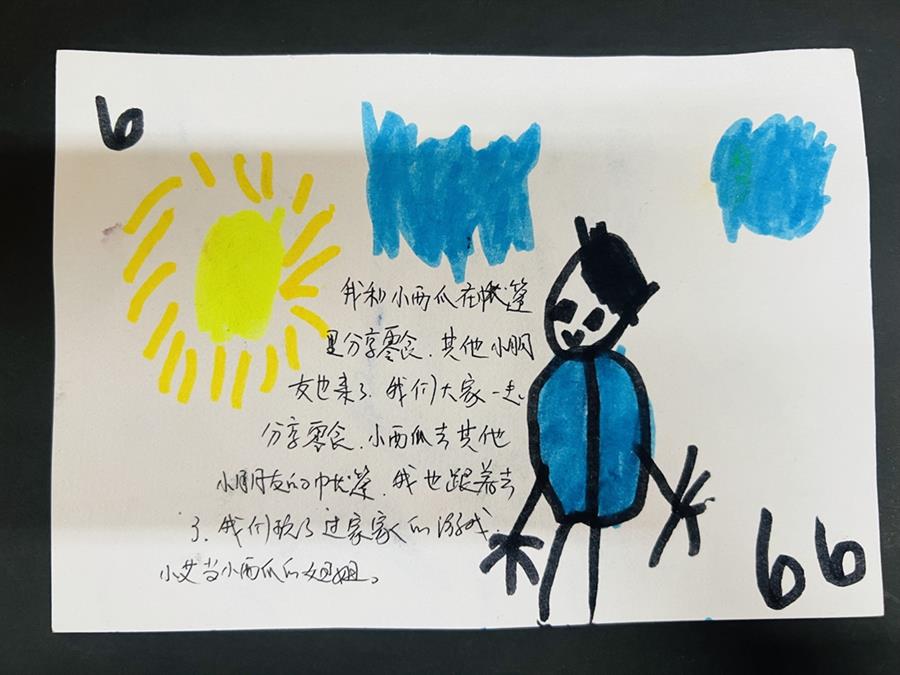 6
我和小西瓜在帐篷
里分享零食.其他小朋
友也来了.我们大家一起
分享零食.小西瓜去其他
小朋友的帐篷.我也跟着去
了.我们玩了过家家的游戏.
小艾当小西瓜的姐姐。
66